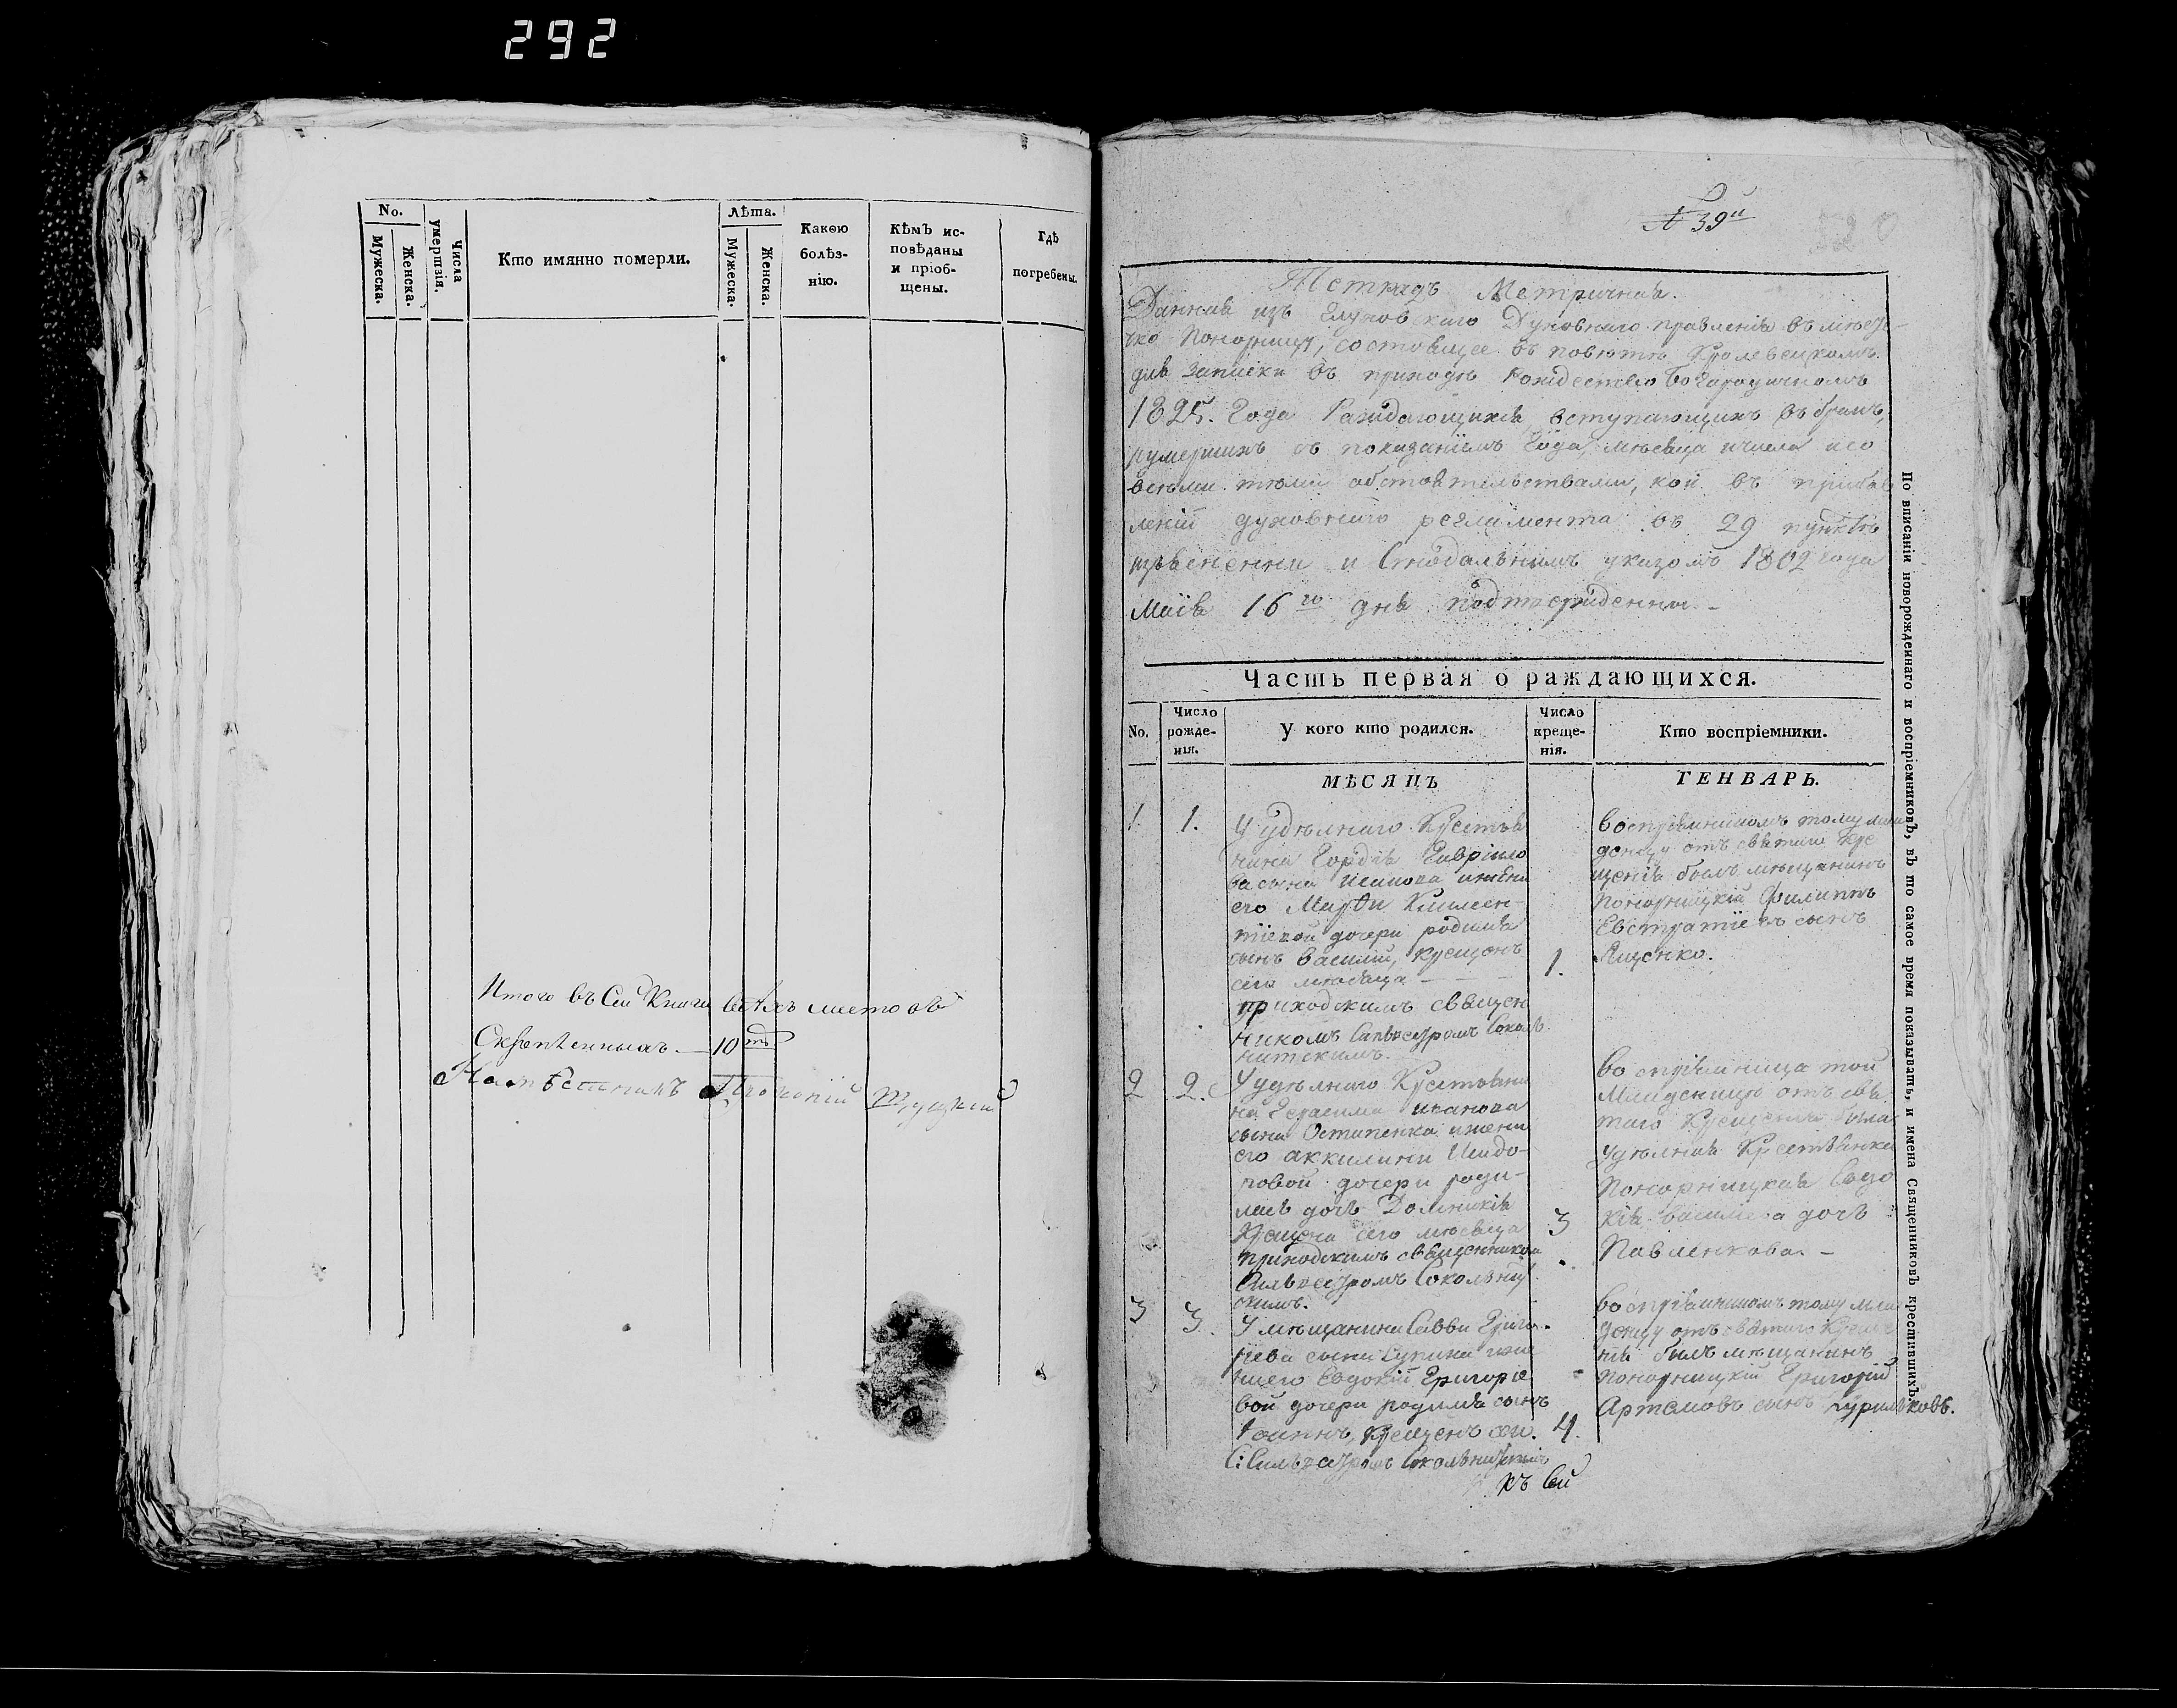 292
No.
Мужеска.
Женска.
Числа умершзія.
Кто имянно померли.
Лѣта.
Мужеска.
Женска.
Какою болѣз-
нію.
Кѣмъ ис-
повѣданы
и пріоб-
щены.
Гдѣ
погребены.
Итого въ Сей Книги всѣхъ листовъ
Скрепленныхъ — 10ть
Намѣсникъ Прокопій
№ 39й
Тетрадь Метричная.
Данная изъ Глуховскаго Духовнаго правленія въ мѣсте-
чко Понорницу, состоящее въ повѣтѣ Кролевецкомъ
для записки въ приходѣ Рождество Богородичномъ
1825. Года Раждающихся вступающихъ въ бракъ,
и умершихъ съ показаніемъ Года, мѣсяца и числа и со
всѣми тѣми обстоятельствами, кои въ прибав
леніи духовнаго регламента въ 29 пунктѣ
изъясненни и Сѵнодальнимъ указомъ 1802 года
Маія 16го дня подтверждены. -
Часть первая о раждающихся.
No.
Число
рожде-
нія.
У кого кто родился.
Число
креще-
нія.
Кто воспріемники.
МѢСЯЦЪ
ГЕНВАРЬ.
1. 1. У удѣлнаго Крестья
нина Гордѣя Гавріило
ва сына и жени
его Марѳи
тіевой дочери родился
сынъ Василій, крещенъ
сего мѣсяца —
приходскимъ священ
никомъ Сильвестромъ Соколь
нитскимъ.
1.
воспріемникомъ тому мла
денцу отъ святаго кре
щенія былъ мѣщанинъ
понорницкій Филиппъ
Евстратіевъ сынъ
Яценко.
2 2. У удѣлнаго Крестьяни
на Герасима Иванова
сына Остапенка и жени
его Аккилини Исидо-
ровой дочери роди-
лась дочь Домникія
Крещена сего мѣсяца
приходскимъ священникомъ
Сильвестромъ Сокольниц
скимъ.
3
воспріемница той
Младеницѣ отъ свя
таго Крещенія была
удѣлная Крестьянка
Понорницкая Евдо
кія Василева дочь
Павленкова. —
3 3. У мѣщанина Саввы Григо-
ріева сына и же
ни его Евдокіи Григоріе
вой дочери родился сынъ
Іоаннъ, Крещенъ
С: Сильвестромъ Сокольнитскимъ
4.
воспріемникомъ тому мла
денцу отъ святаго Креще
нія былъ мѣщанинъ
понорницкій Григорій
Артемовъ сынъ Куриляковъ.
къ Сей
По вписаніи новорожденнаго и воспріемниковъ, въ то самое время показывать, и имена Священниковъ крестившихъ.